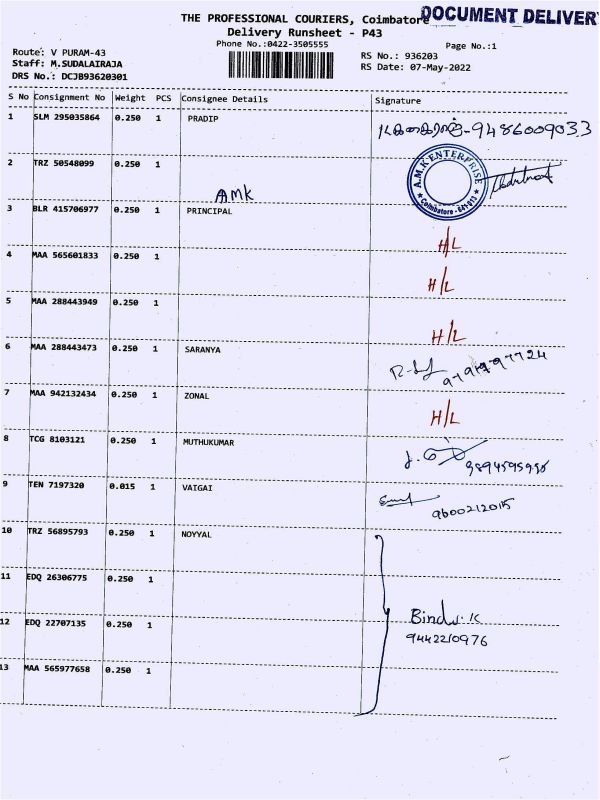 DOCUMENT DELIVERY
THE PROFESSIONAL COURIERS, Coimbatore
Delivery Runsheet - P43
Phone No.:0422-3505555
Page No.:1
Route: V PURAM-43
Staff: M.SUDALAIRAJA
DRS No.: DCJB93620301
RS No.: 936203
RS Date: 07-May-2022
S No Consignment No Weight PCS Consignee Details Signature
1 SLM 295035864 0.250 1 PRADIP
-9486009033
2 TRZ 50548099 0.250 1
AMK
A.M.K ENTERPRISE
Coimbatore - 641 013
3 BLR 415706977 0.250 1 PRINCIPAL
H/L
4 MAA 565601833 0.250 1
H/L
5 MAA 288443949 0.250 1
H/L
6 MAA 288443473 0.250 1 SARANYA
7 MAA 942132434 0.250 1 ZONAL
H/L
8 TCG 8103121 0.250 1 MUTHUKUMAR
9 TEN 7197320 0.015 1 VAIGAI
9600212015
10 TRZ 56895793 0.250 1 NOYYAL
11 EDQ 26306775 0.250 1
12 EDQ 22707135 0.250 1
Bindu. K
9442210976
13 MAA 565977658 0.250 1